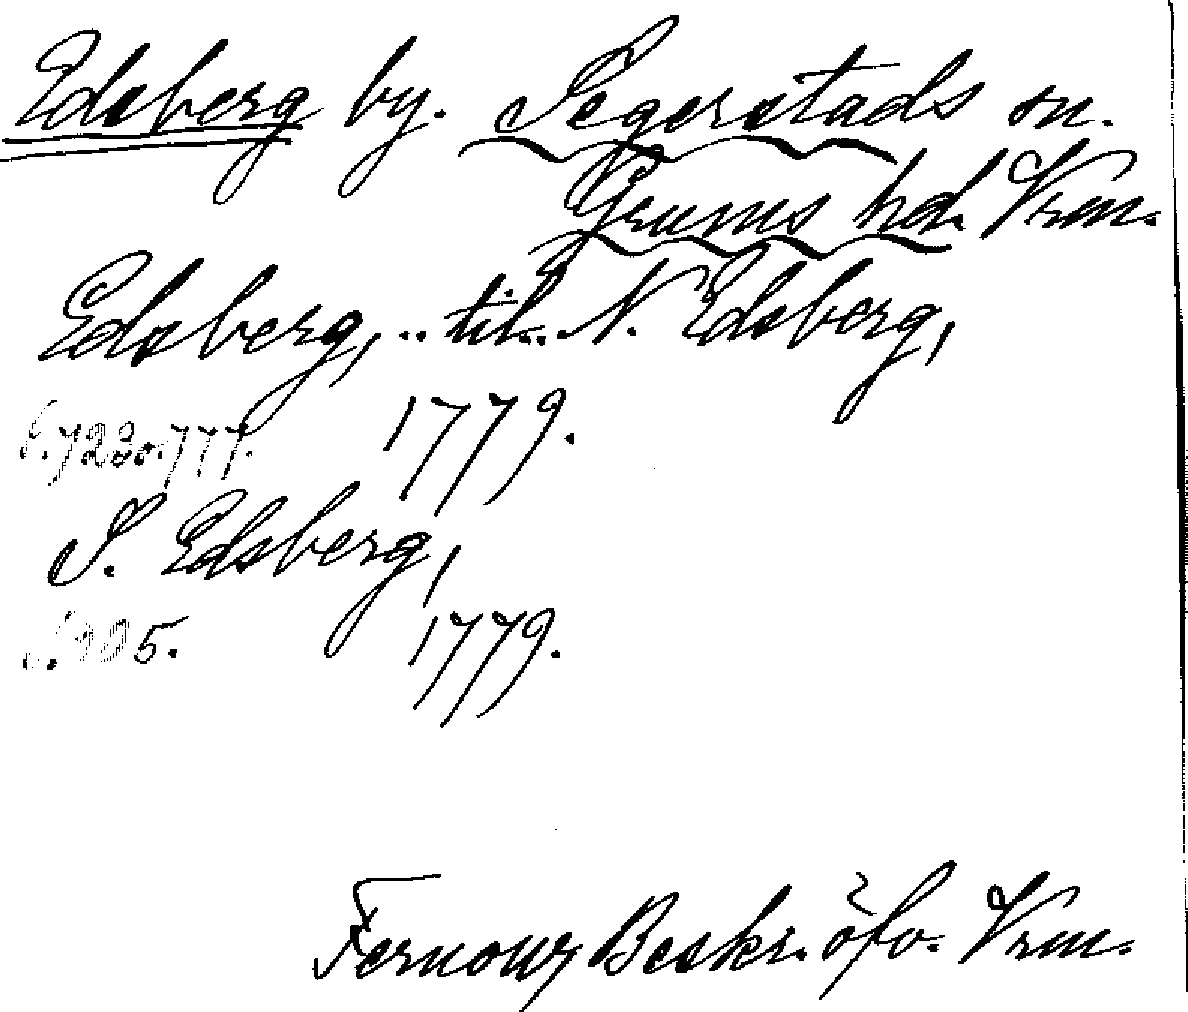 Edsberg by. Segerstads sn.
Grums hd. Vrm.
Edsberg, .. till.. N. Edsberg,
s. 723o.777. 1779.
S. Edsberg,
5. 1779.
Fernows Beskr. öfv. Vrm.